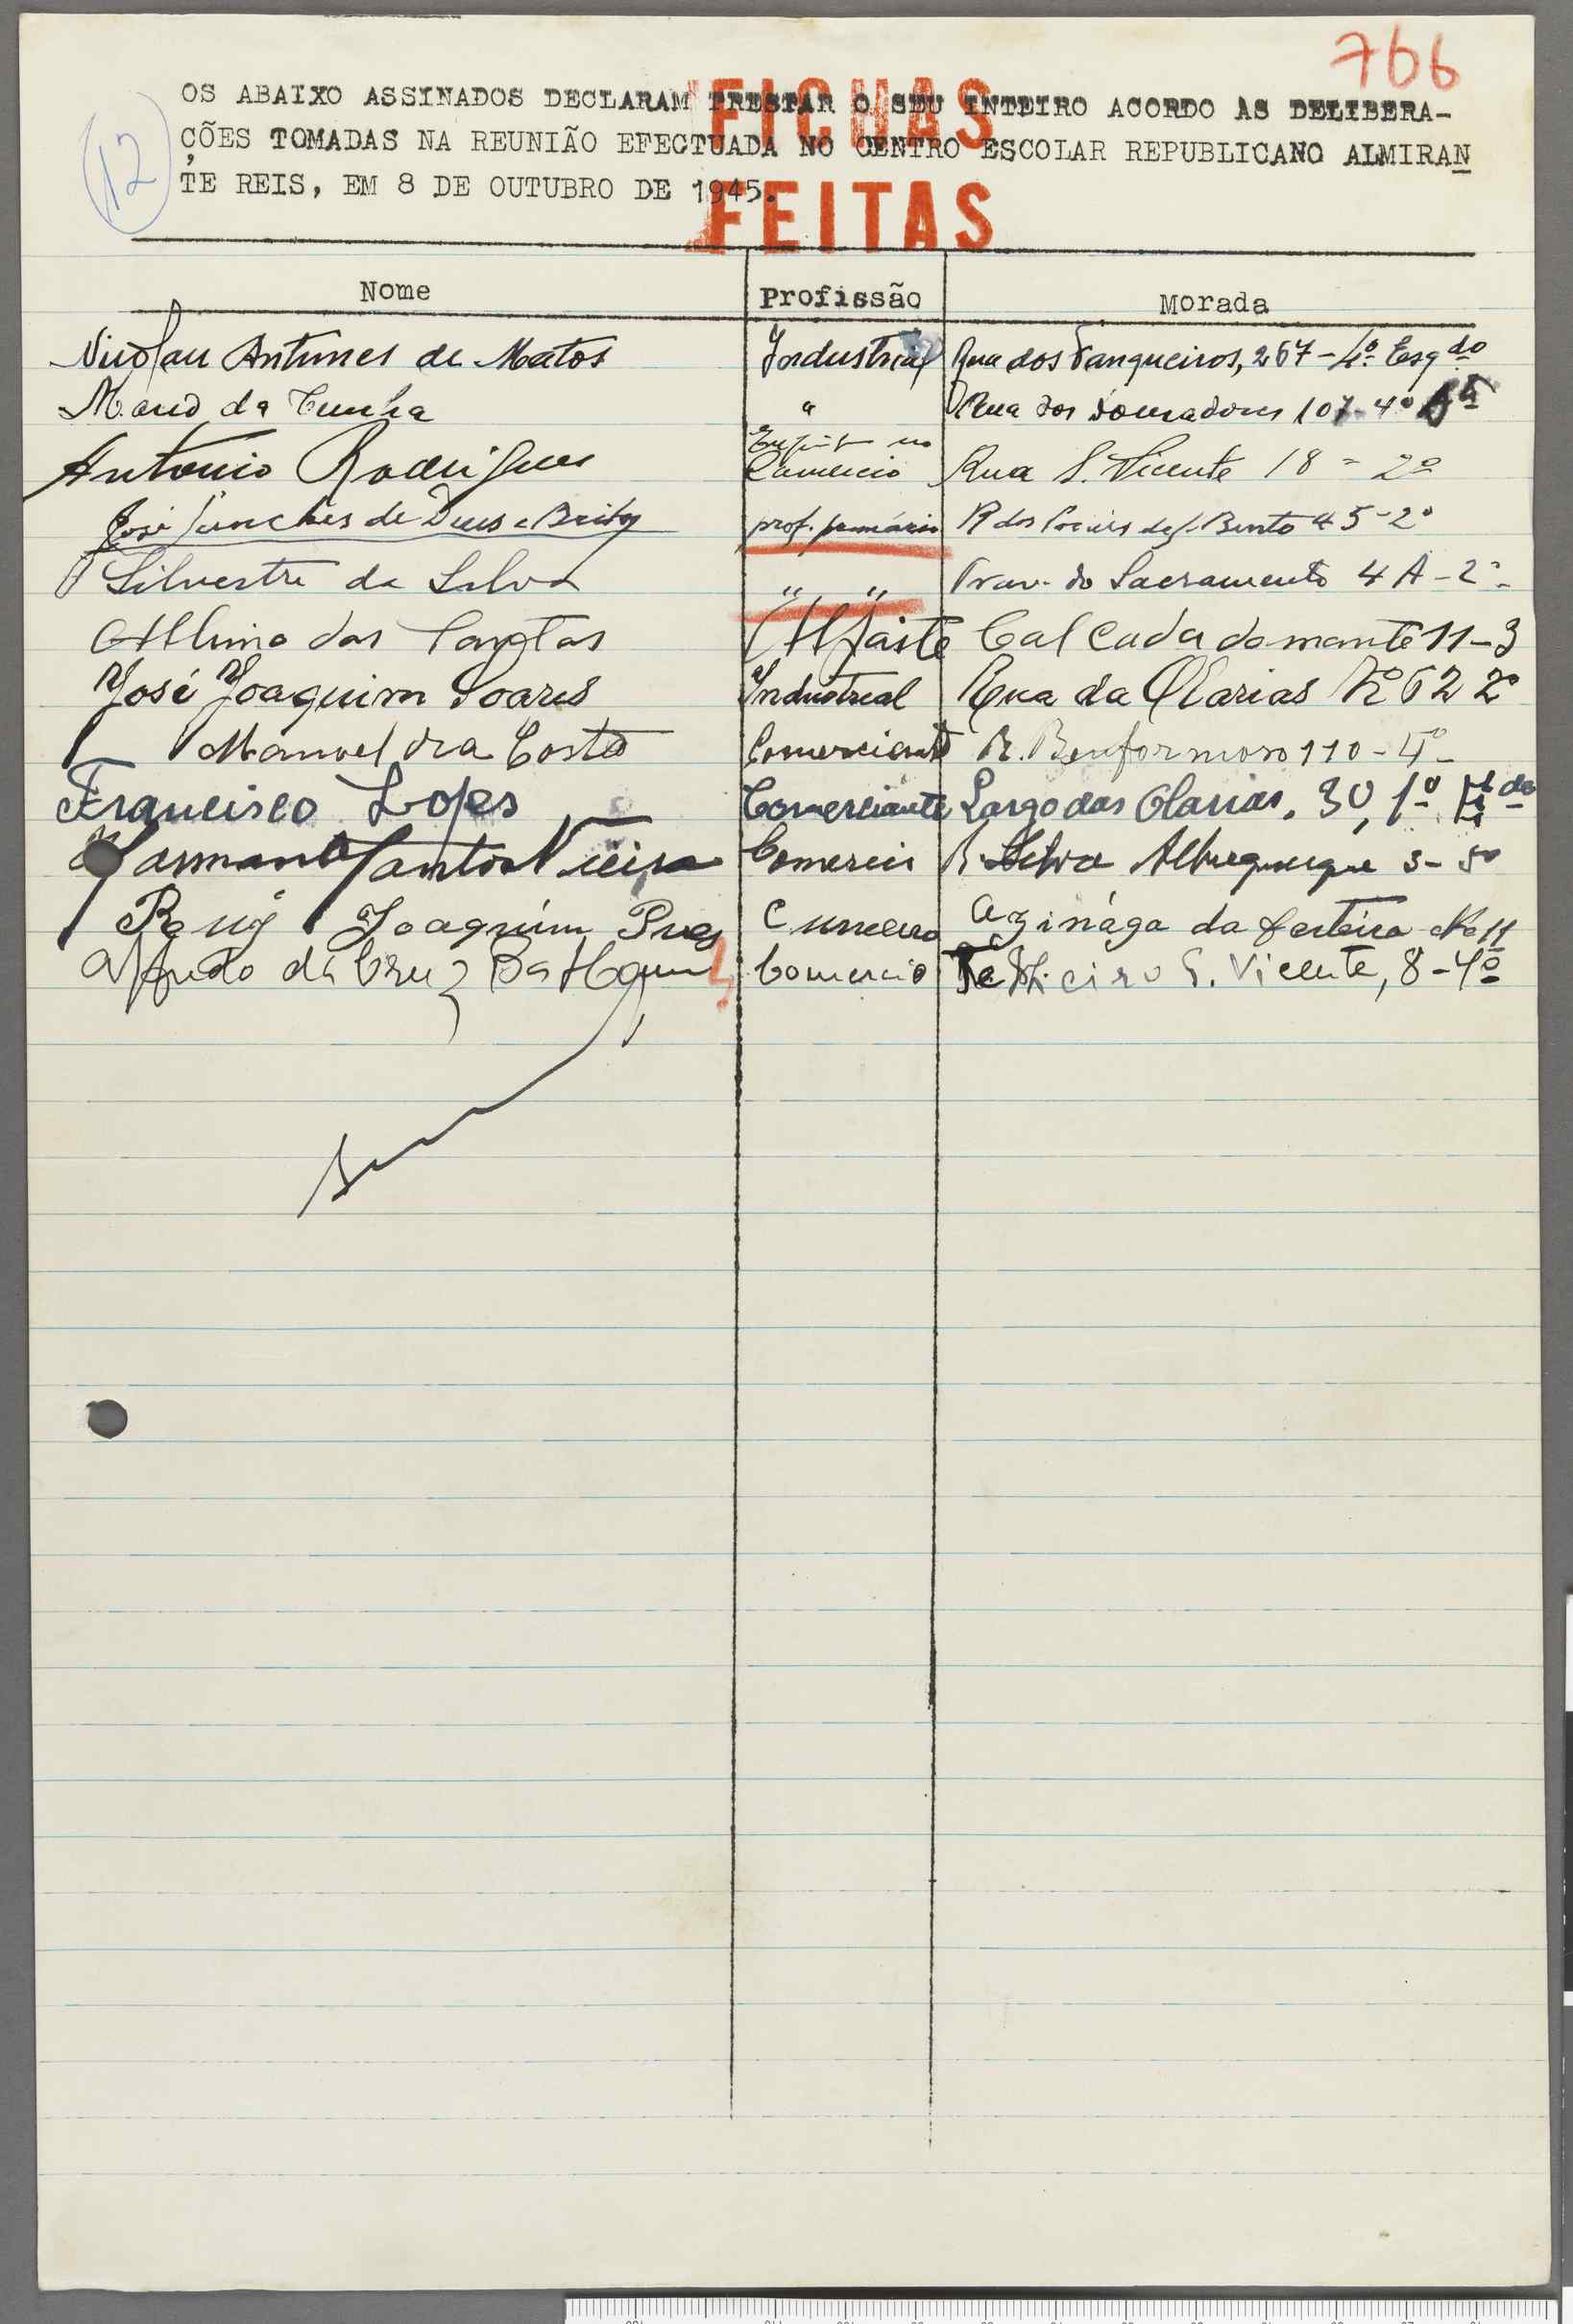 766
12
OS ABAIXO ASSINADOS DECLARAM PRESTAR O SEU INTEIRO ACORDO AS DELIBERA-
ÇÕES TOMADAS NA REUNIÃO EFECTUADA NO CENTRO ESCOLAR REPUBLICANO ALMIRAN
TE REIS, EM 8 DE OUTUBRO DE 1945.
FICHAS
FEITAS
Nome Profissão Morada
Nicolau Antunes de Matos Industrial Rua dos Fanqueiros, 267-4º Esqdo
Mario da Cunha " Rua dos Douradores 107-4º
Antonio Rodrigues no Comercio Rua S. Vicente 18-2º
José Sanches de Deus e Brito prof. primário R dos Pociais de S. Bento 45-2º
Silvestre da Silva " " Trav. do Sacramento 4A-2º
Albino dos Santos Alfaiate Calcada do monte 11-3
José Joaquim Soares Industrial Rua da Olarias Nº 62 2º
Manuel da Costa Comerciante R. Benformoso 110-4º
Francisco Lopes Comerciante Largo das Olarias, 30, 1º
Santos Vieira Comercio R. Silva Albuquerque 3-5º
Ruy Joaquim Pires Azinága da Nº 11
Alfredo da Cruz Comercio S. Vicente, 8-4º